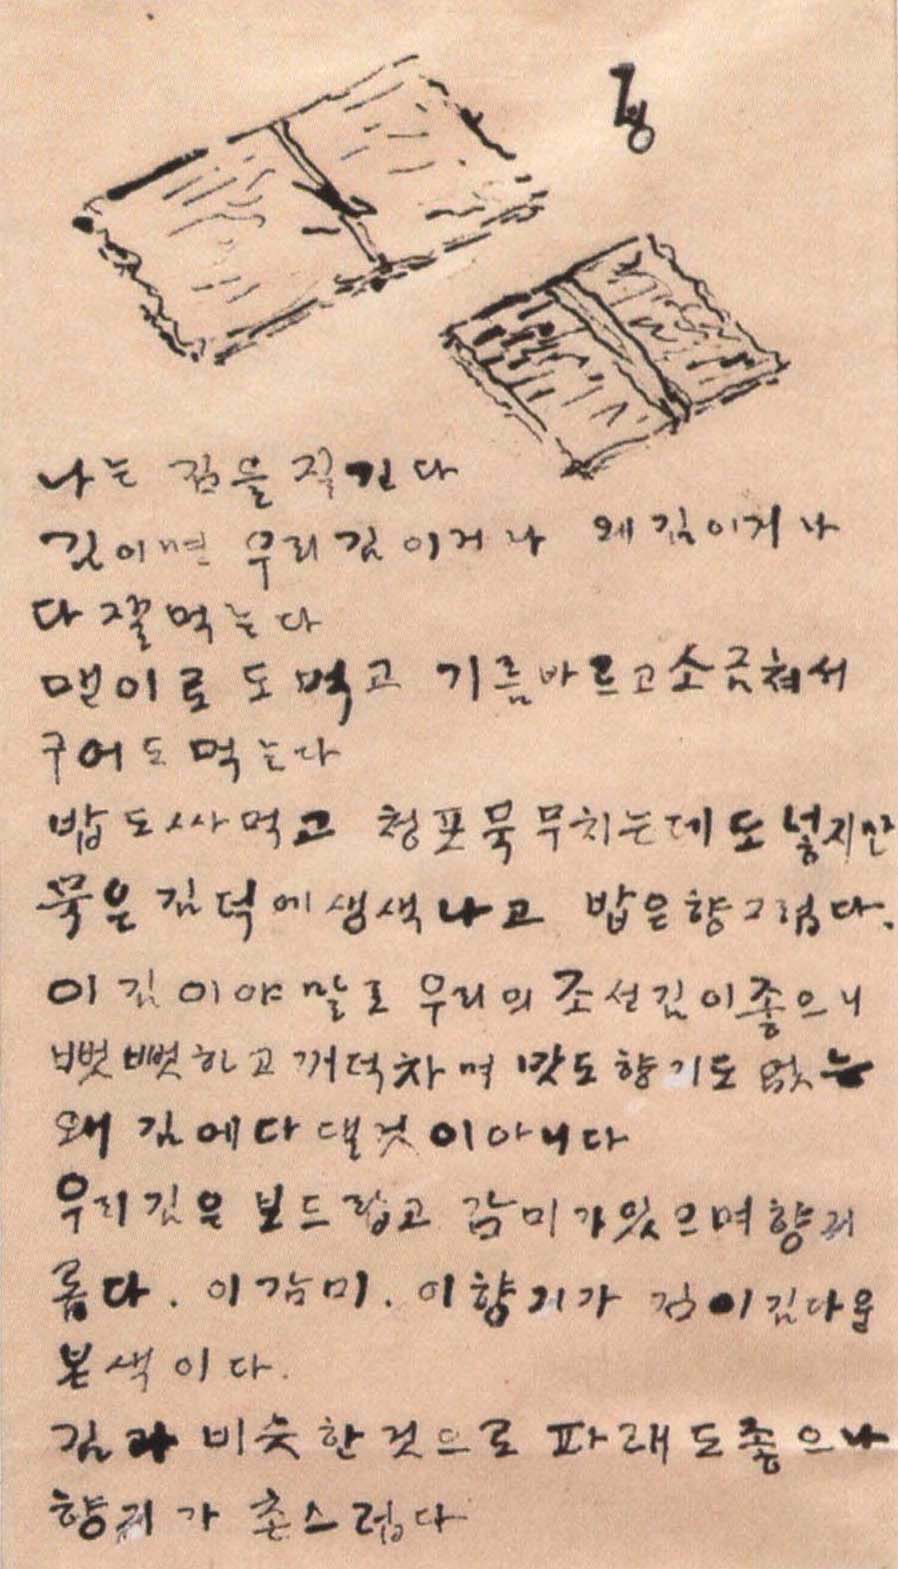 나는 김을 즉긴다
김이면 우리김이거나 왜김이거나
다 잘먹는다
맨이로도먹고 기름바르고소금쳐서
구어도먹는다
밥도싸먹고 청포묵무치는데도넣지만
묵은김덕에생색나고 밥은향그럽다.
이김이야말로 우리의조선김이좋으니
뻣뻣하고꺼덕차며 맛도향기도없는
왜김에다댈것이아니다
우리김은보드랍고 감미가있으며향긔
롭다. 이감미. 이향긔가 김이김다운
본색이다.
김과비슷한것으로파래도좋으나
향긔가 촌스럽다